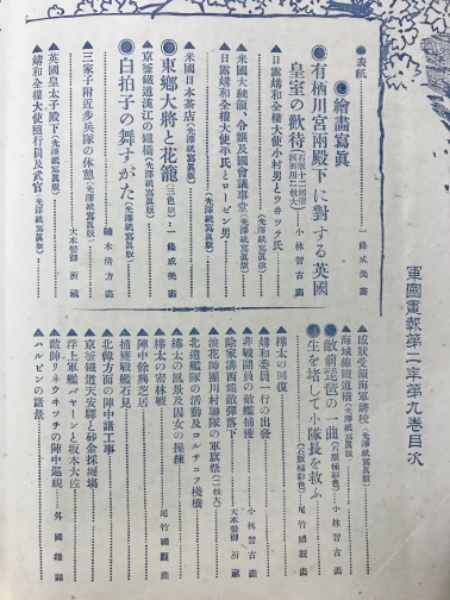 軍國畫報第二年第九卷目次
●表紙……一條成美畫
●繪畫寫眞
●有栖川宮兩殿下に對する英國
皇室の歡待……小林習古畫
▲日露媾和全權大使小村男とウヰッテ氏
(光澤紙寫眞版)
▲米國大統領、令孃及國會議事堂
(光澤紙寫眞版)
▲日露媾和全權大使平氏とローゼン男
(光澤紙寫眞版)
▲米國日本茶店(光澤紙寫眞版)
●東鄉大將と花籠(三色版)…一條成美畫
▲京釜鐵道漢江の鐵橋(光澤紙寫眞版)
●白拍子の舞すがた(光澤紙寫眞版)
鏑木淸方畫
▲三家子附近步兵隊の休憩(光澤紙寫眞版)
大本營御所藏
▲英國皇太子殿下(光澤紙寫眞版)
▲媾和全權大使隨行員及武官(光澤紙寫眞版)
▲感狀受領海軍將校(光澤紙寫眞版)
▲海城線鐵道橋(光澤紙寫眞版)
●敵前琵琶の一曲(石版極彩色)…小林習古畫
●生を堵して小隊長を救ふ
(石版極彩色)…尾竹國觀畫
▲樺太の回復
▲媾和委員一行の出發
▲非戰鬪員の敵艦捕獲……小林習古畫
▲除家溝西端敵彈落下……大本營御所藏
▲浪花師團川村聯隊の軍旗祭(二枚大)
▲北遣艦隊の活動及コルサコフ棧橋
▲樺太の風景及囚女の操棟
▲樺太の密林戰……尾竹國觀畫
▲陣中餘興芝居
▲捕獲戰艦石見
▲北韓方面の陣中諸工事
▲京釜鐵道天安驛と砂金採掘場
▲浮上軍艦バヤーンと坂本大佐
▲敵帥リネウヰッチの陣中巡視……外國雜誌
▲ハルピンの諸景